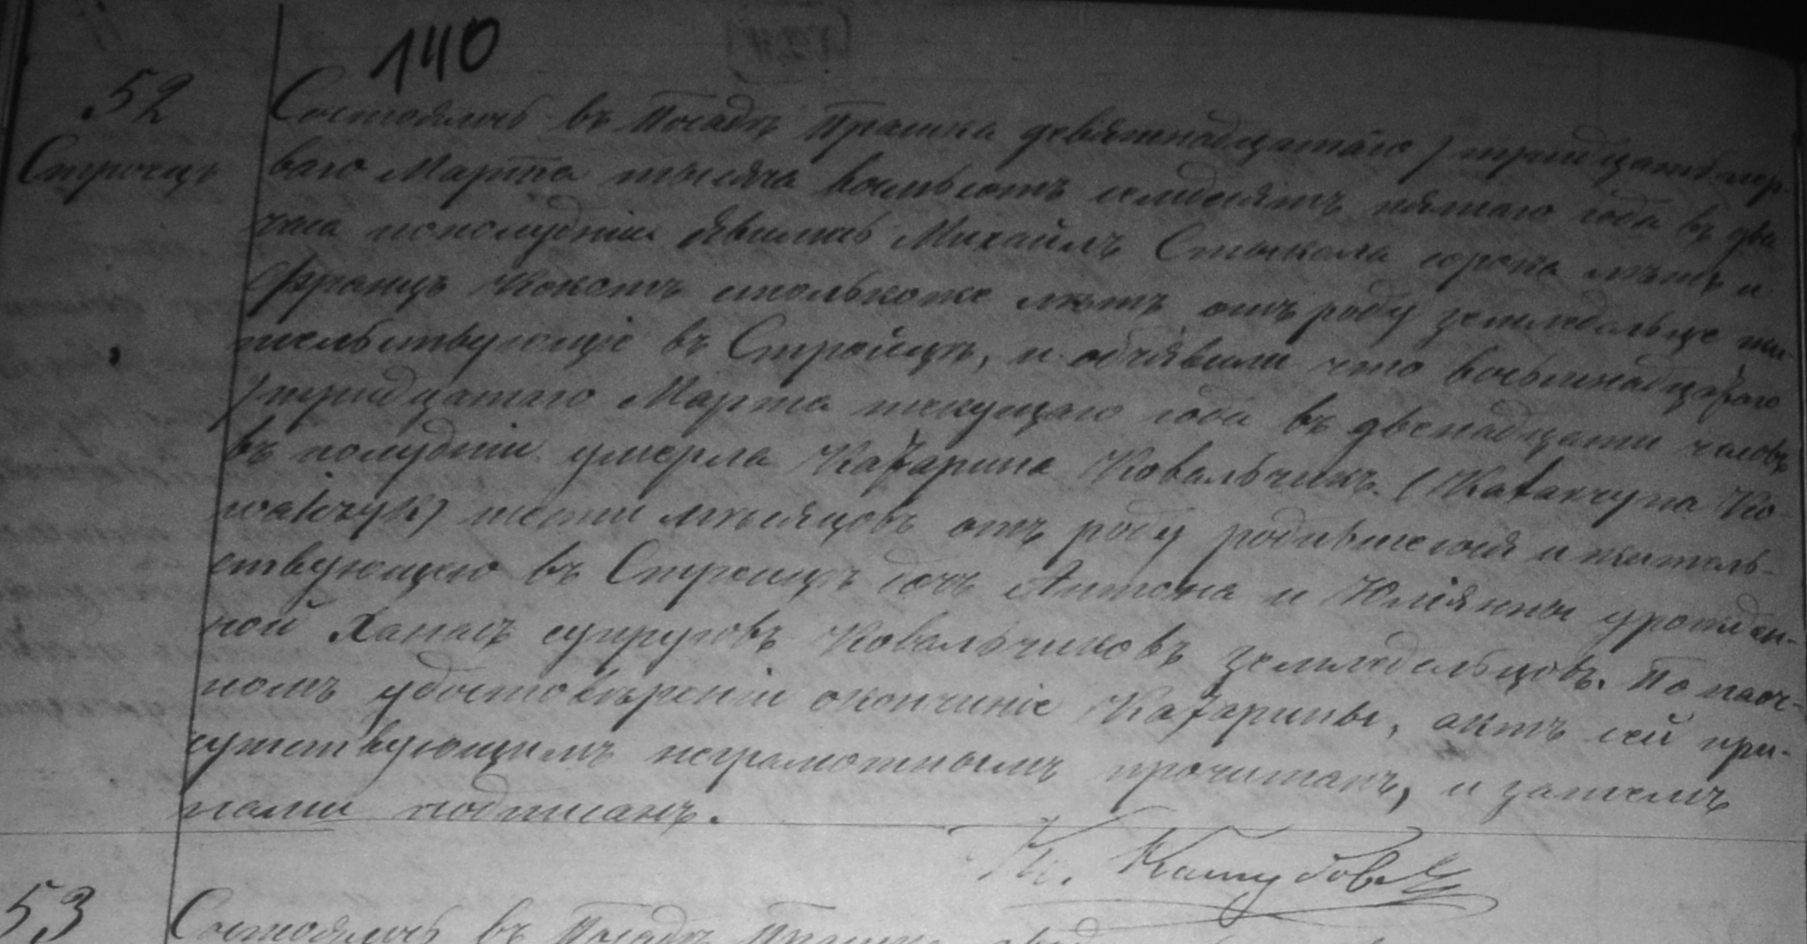 140
52
Строецъ
Состоялось въ Посадѣ Прашка девятнадцатаго / тридцать пер-
ваго Марта тысяча восемьсотъ семдесятъ пятаго года въ два
часа пополудни. Явились Михаилъ Стыкала сорока лѣтъ и
Францъ Кокотъ столькоже лѣтъ отъ роду земледѣльце жи-
тельствующіе въ Стройцѣ, и объявили что восьмнадцатаго
/ тридцатаго Марта текущаго года въ двенадцати часовъ
въ полудни умерла Каѳарина Ковальчикъ (Katarzyna Ko-
walczyk) шести мѣсяцовъ отъ роду родившегося и житель-
ствующею въ Строецѣ дочь Антона и Юліянны урожден-
ной Ханасъ супруговъ Ковальчиковъ земледѣльцовъ. По наоч-
номъ удостовѣреніи окончиніе Каѳарины, актъ сей при-
сутствующимъ неграмотнымъ прочитанъ, и затемъ
нами подписанъ.
53
Состоялось въ Посадѣ Прашка